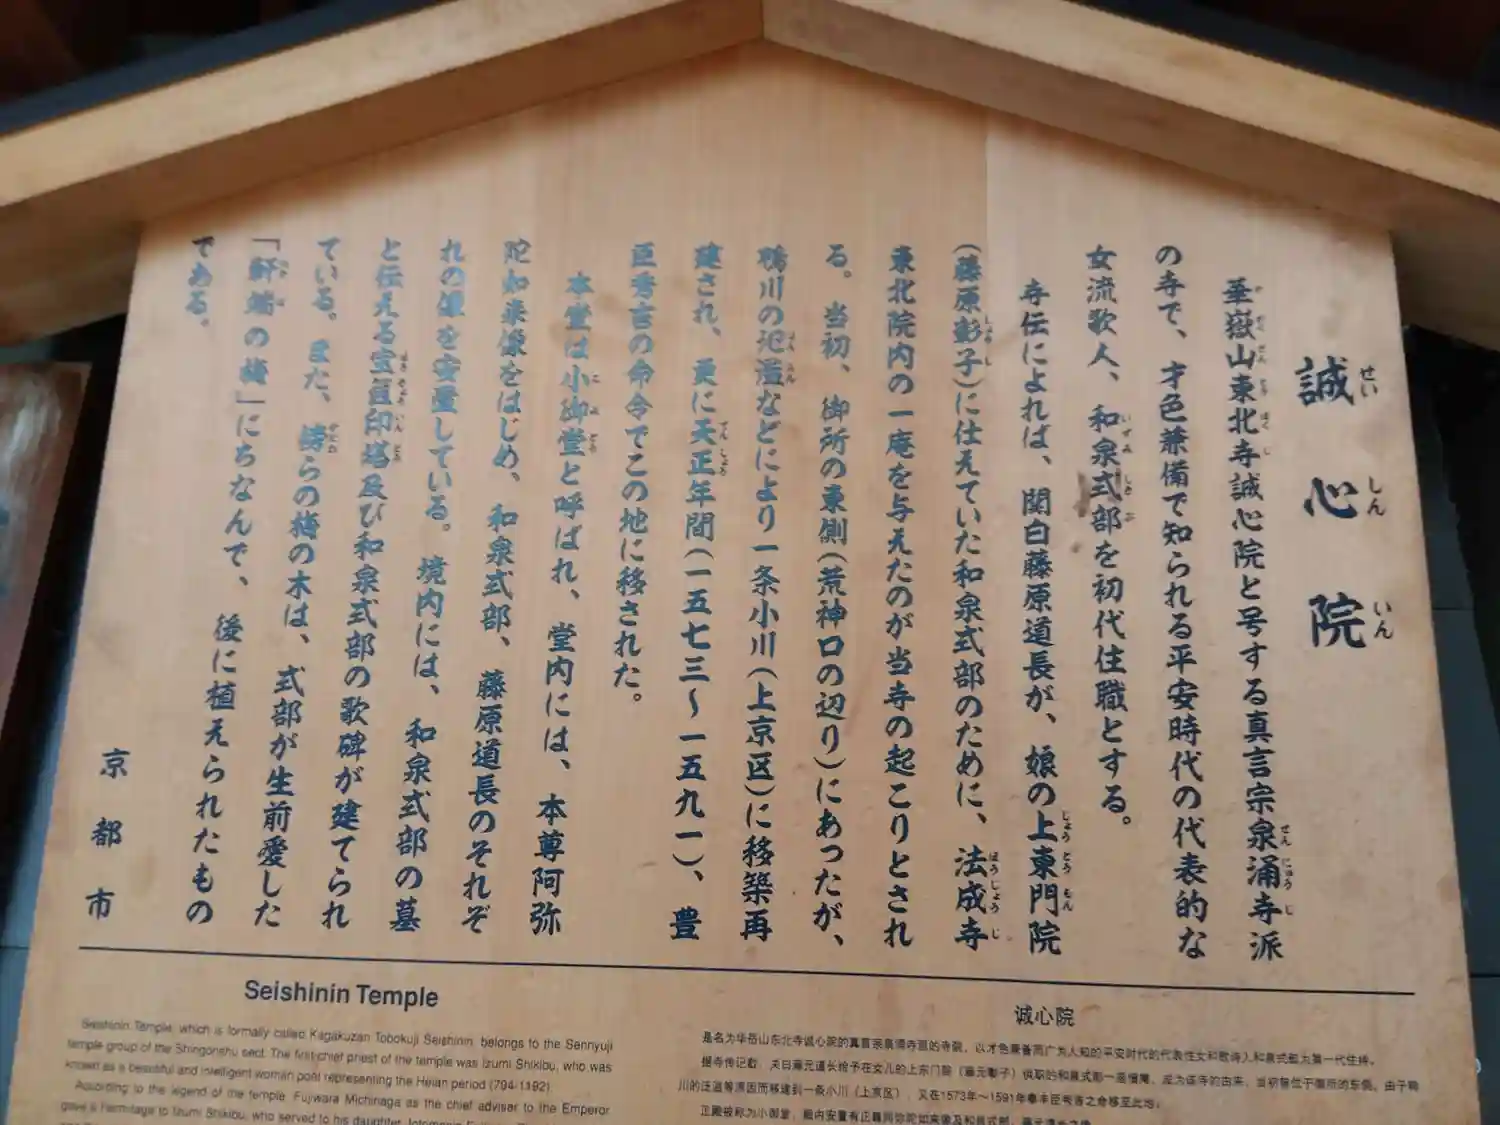 誠心院
華嶽山東北寺誠心院と号する真言宗泉涌寺派
の寺で、才色兼備で知られる平安時代の代表的な
女流歌人、和泉式部を初代住職とする。
寺伝によれば、関白藤原道長が、娘の上東門院
(藤原彰子)に仕えていた和泉式部のために、法成寺
東北院内の一庵を与えたのが当寺の起こりとされ
る。当初、御所の東側(荒神口の辺り)にあったが、
鴨川の氾濫などにより一条小川(上京区)に移築再
建され、更に天正年間(一五七三〜一五九一)、豊
臣秀吉の命令でこの地に移された。
本堂は小御堂と呼ばれ、堂内には、本尊阿弥
陀如来像をはじめ、和泉式部、藤原道長のそれぞ
れの像を安置している。境内には、和泉式部の墓
と伝える宝篋印塔及び和泉式部の歌碑が建てられ
ている。また、傍らの梅の木は、式部が生前愛した
「軒端の梅」にちなんで、後に植えられたもの
である。
京都市
Seishinin Temple
Seishinin Temple, which is formally called Kagakuzan Tobokuji Seishinin, belongs to the Sennyuji
temple group of the Shingonshu sect. The first chief priest of the temple was Izumi Shikibu, who was
known as a beautiful and intelligent woman poet representing the Heian period (794-1192).
According to the legend of the temple, Fujiwara Michinaga as the chief adviser to the Emperor
gave a Hermitage to Izumi Shikibu, who served to his daughter,
诚心院
是名为华岳山东北寺诚心院的真言宗泉涌寺派的寺院，以才色兼备而广为人知的平安时代的代表性女和歌诗人和泉式部为第一代住持。
据寺传记载，关白藤元道长给予在女儿的上东门院（藤元彰子）供职的和泉式部一座愭庵，成为该寺的由来，当初曾位于御所的东侧。由于鸭
川的泛滥等原因而移建到一条小川（上京区），又在1573年～1591年奉丰臣秀吉之命移至此地。
正殿被称为小御堂，殿内安置有正尊阿弥陀如来像及和泉式部、藤元道长之像。